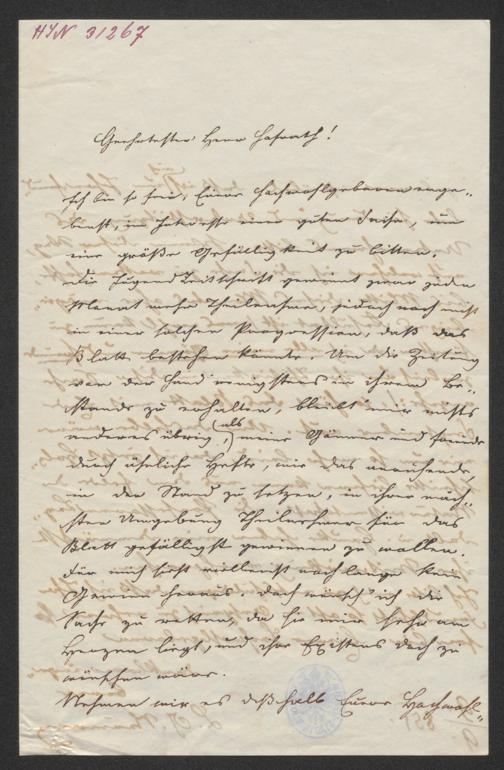 HIN 31267
Geehrtester Herr Hofrath!
Ich bin so frei, Euer Hochwohlgeboren erge-
benst, im Interesse einer guten Sache, um
eine große Gefälligkeit zu bitten.
Die Jugend Zeitschrift gewinnt zwar jeden
Monat mehr Theilnehmer, jedoch noch nicht
in einer solchen Progression, daß das
Blatt bestehen könnte. Um die Zeitung
vor der Hand wenigstens in ihrem Be-
stande zu erhalten, bleibt mir nichts
anderes übrig, (als) meine Gönner und Freunde
durch ähnliche Hefte, wie das anreihende,
in den Stand zu setzen, in ihrer näch-
sten Umgebung Theilnehmer für das
Blatt gefälligst gewinnen zu wollen.
Für mich schaut vielleicht noch lange kein
Gewinn heraus. Doch wünsch' ich die
Sache zu retten, da sie mir sehr am
Herzen liegt, und ihre Existenz doch zu
wünschen wäre.
Nehmen mir es deßhalb Euer Hochwohl-